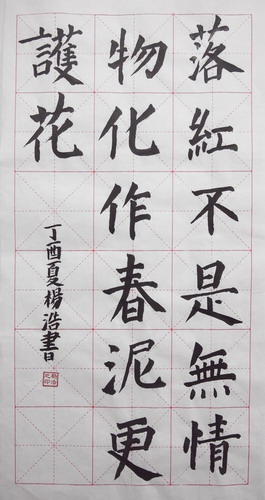 落紅不是無情
物化作春泥更
護花
丁酉夏楊浩書